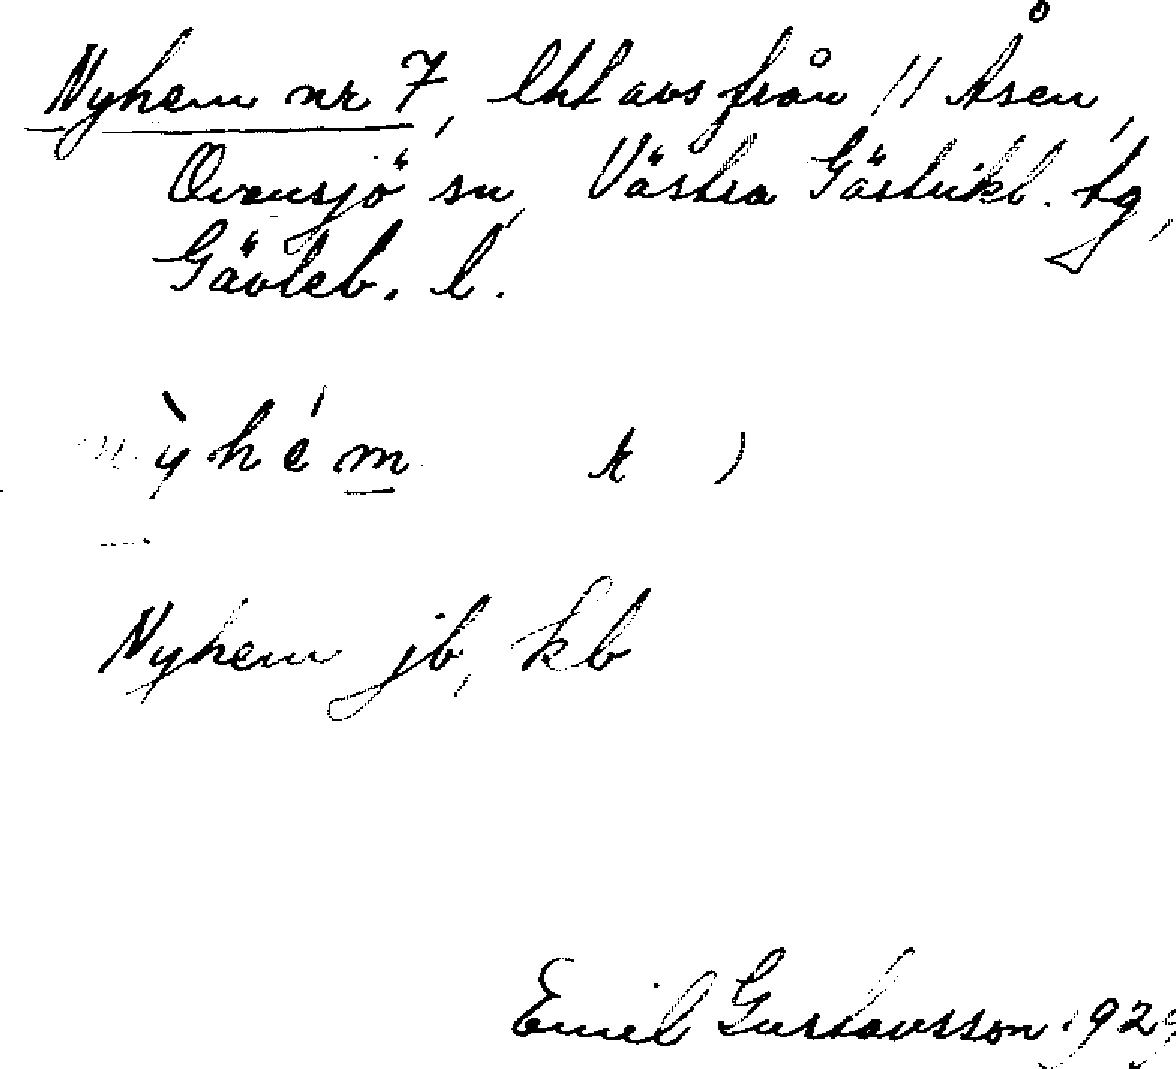 Nyhem nr 7, lht avs från 11 Åsen,
Ovansjö sn, Västra Gästrikl. tg,
Gävleb. l.
nỳhém
Nyhem jb, kb
Emil Gustavsson 1929